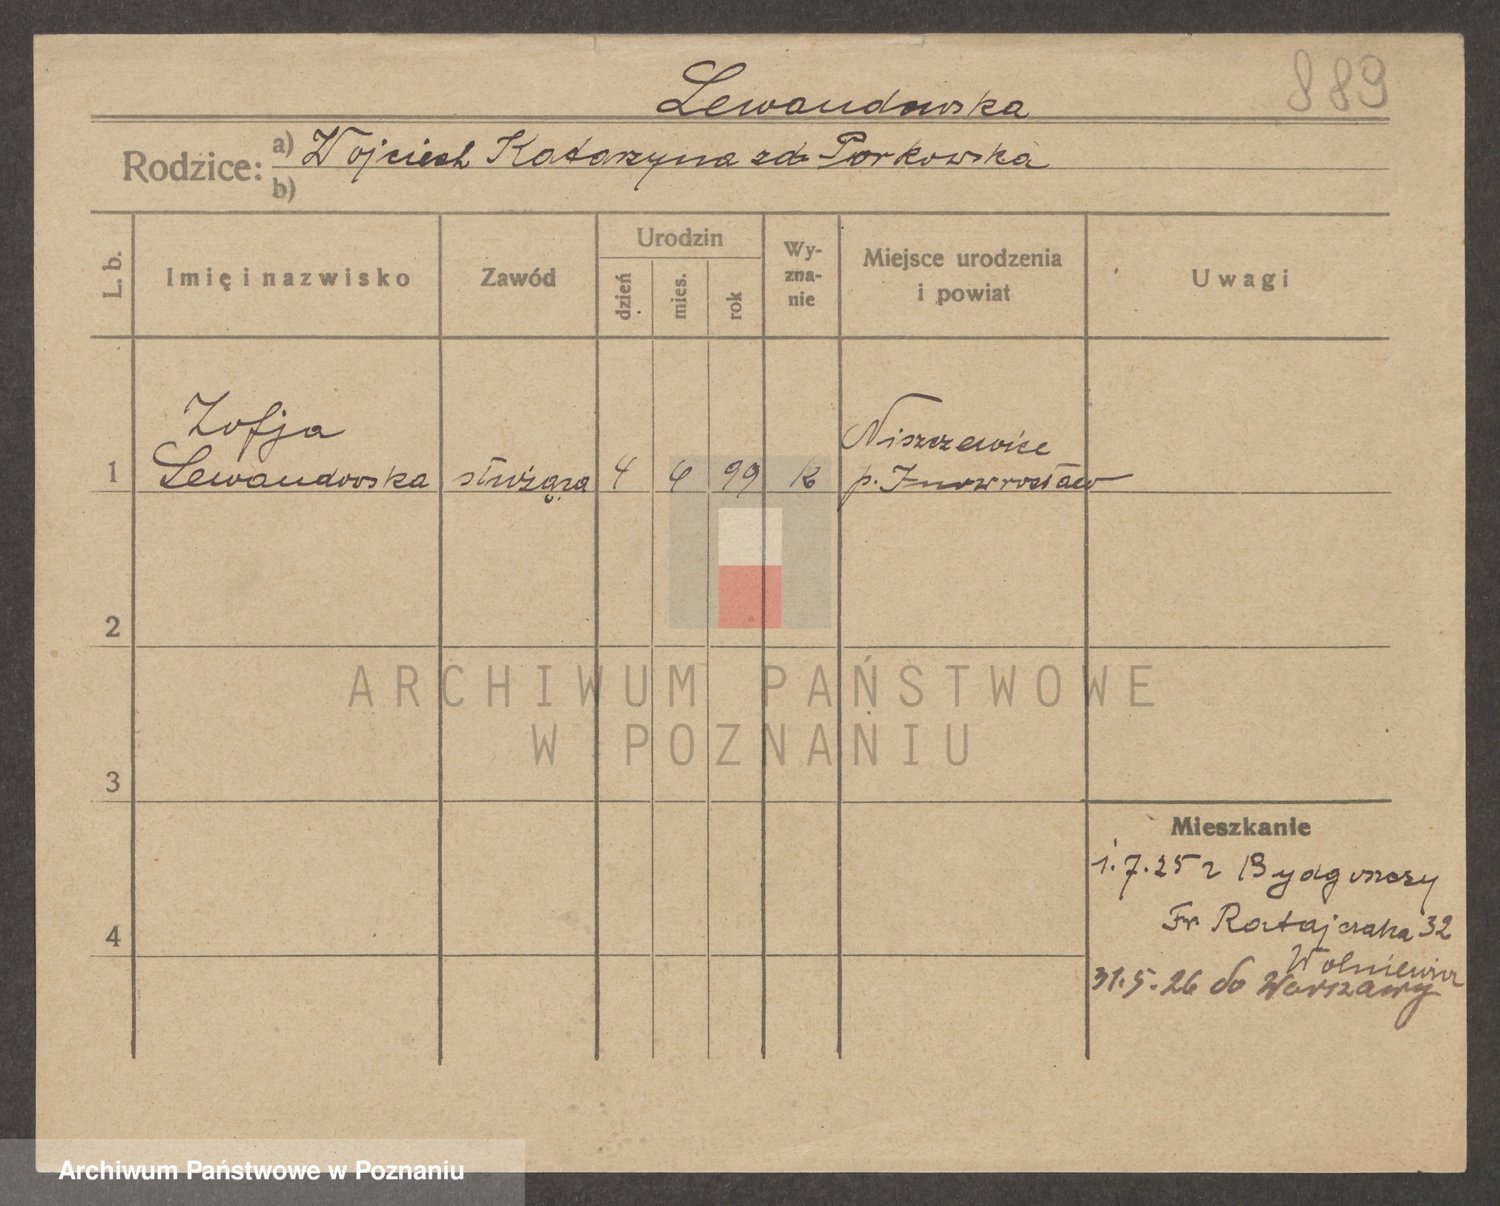 889
Lewandowska
Rodzice: a) Wojciech Katarzyna zd. Porkowska
b)
L. b. Imię i nazwisko Zawód Urodzin dzień mies. rok Wy-zna-nie Miejsce urodzenia i powiat Uwagi
Zofja
Lewandowska
1
służąca 4 4 99 k
Niszczewice
p. Inowrocław
2
3
4
Mieszkanie
1.7.25 z Bydgoszczy
Fr Ratajczaka 32
Wolniewicz
31.5.26 do Warszawy
ARCHIWUM PAŃSTWOWE
W POZNANIU
Archiwum Państwowe w Poznaniu